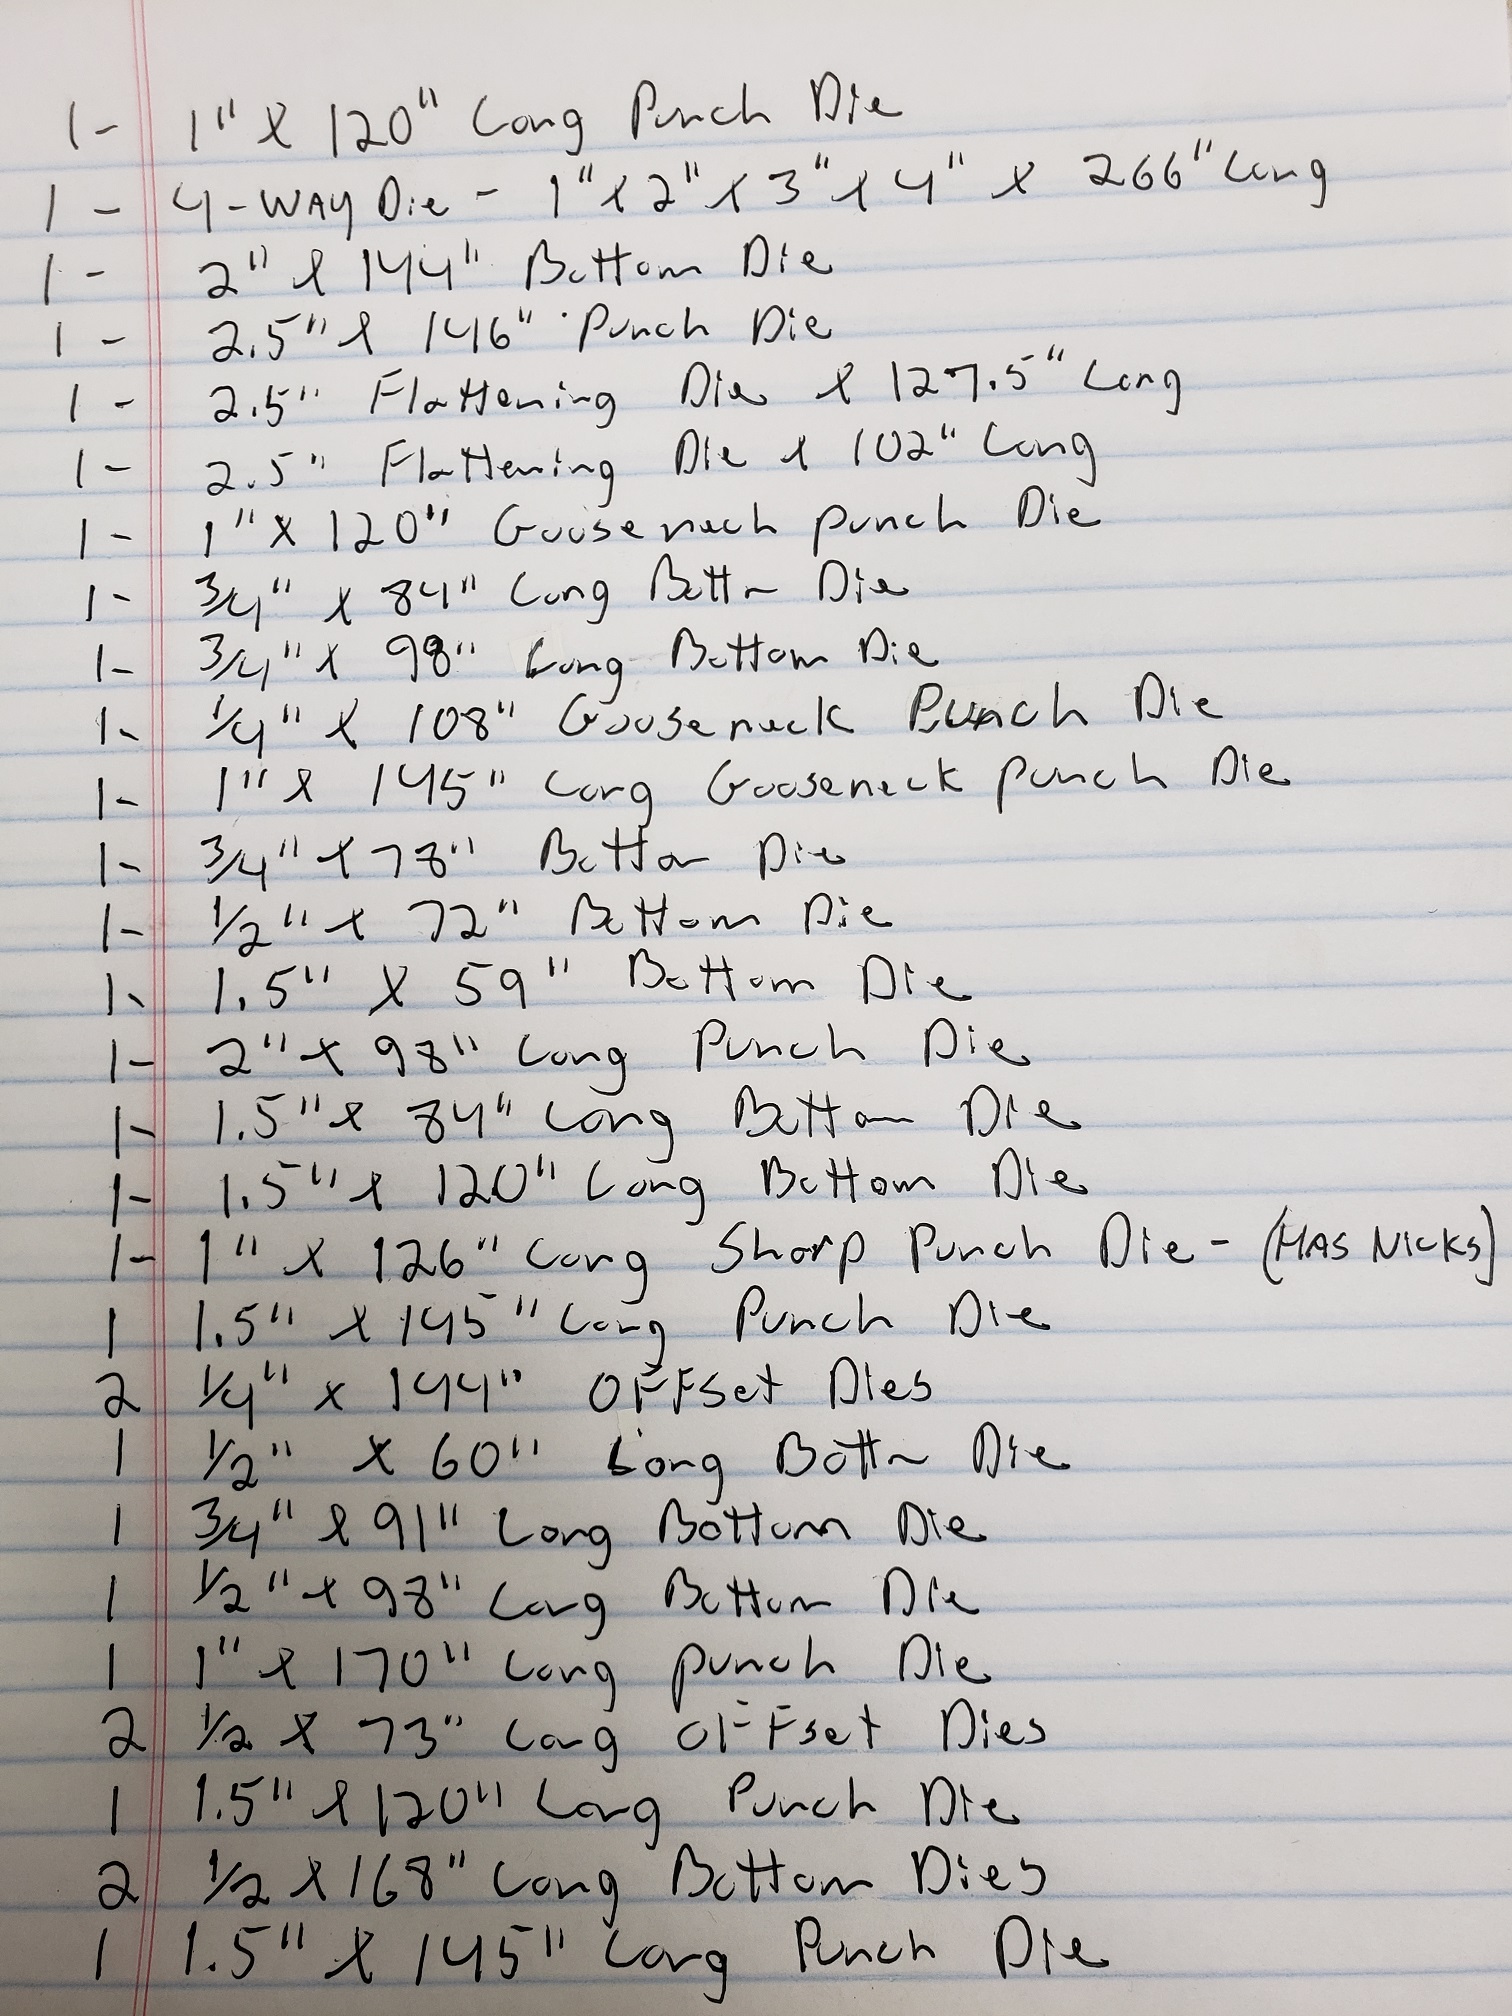 1- 1" X 120" Long Punch Die
1- 4-WAY Die - 1" x 2" x 3" x 4" x 266" Long
1- 2" x 144" Bottom Die
1- 2.5" x 146" Punch Die
1- 2.5" Flattening Die x 127.5" Long
1- 2.5" Flattening Die x 102" Long
1- 1" X 120" Gooseneck punch Die
1- 3/4" x 84" Long Bottm Die
1- 3/4" x 98" Long Bottom Die
1- 1/4" x 108" Gooseneck Punch Die
1- 1" x 145" Long Gooseneck punch Die
1- 3/4" x 78" Bottom Die
1- 1/2" x 72" Bottom Die
1- 1.5" X 59" Bottom Die
1- 2" x 98" Long Punch Die
1- 1.5" x 84" Long Bottom Die
1- 1.5" x 120" Long Bottom Die
1- 1" x 126" Long Sharp Punch Die - (HAS NICKS)
1 1.5" x 145" Long Punch Die
2 1/4" x 144" OFFset Dies
1 1/2" X 60" Long Bottm Die
1 3/4" x 91" Long Bottom Die
1 1/2" x 98" Long Bottom Die
1 1" x 170" Long punch Die
2 1/2 x 73" Long OFFset Dies
1 1.5" x 120" Long Punch Die
2 1/2 x 168" Long Bottom Dies
1 1.5" x 145" Long Punch Die